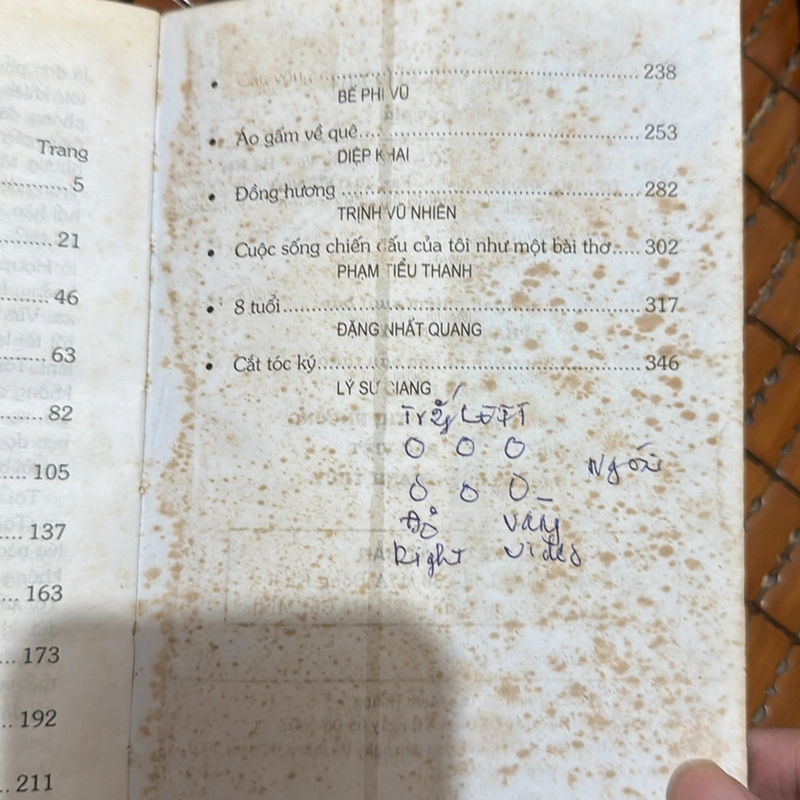 Trang
..........5
..........21
..........46
..........63
..........82
..........105
..........137
..........163
...173
...192
...211
• ..........238
BẾ PHI VŨ
• Áo gấm về quê..........253
DIỆP KHAI
• Đồng hương..........282
TRỊNH VŨ NHIÊN
• Cuộc sống chiến đấu của tôi như một bài thơ.....302
PHẠM TIỂU THANH
• 8 tuổi..........317
ĐẶNG NHẤT QUANG
• Cắt tóc ký..........346
LÝ SƯ GIANG
LEFT
O O O
O O O
Đỏ Vàng
Right Video